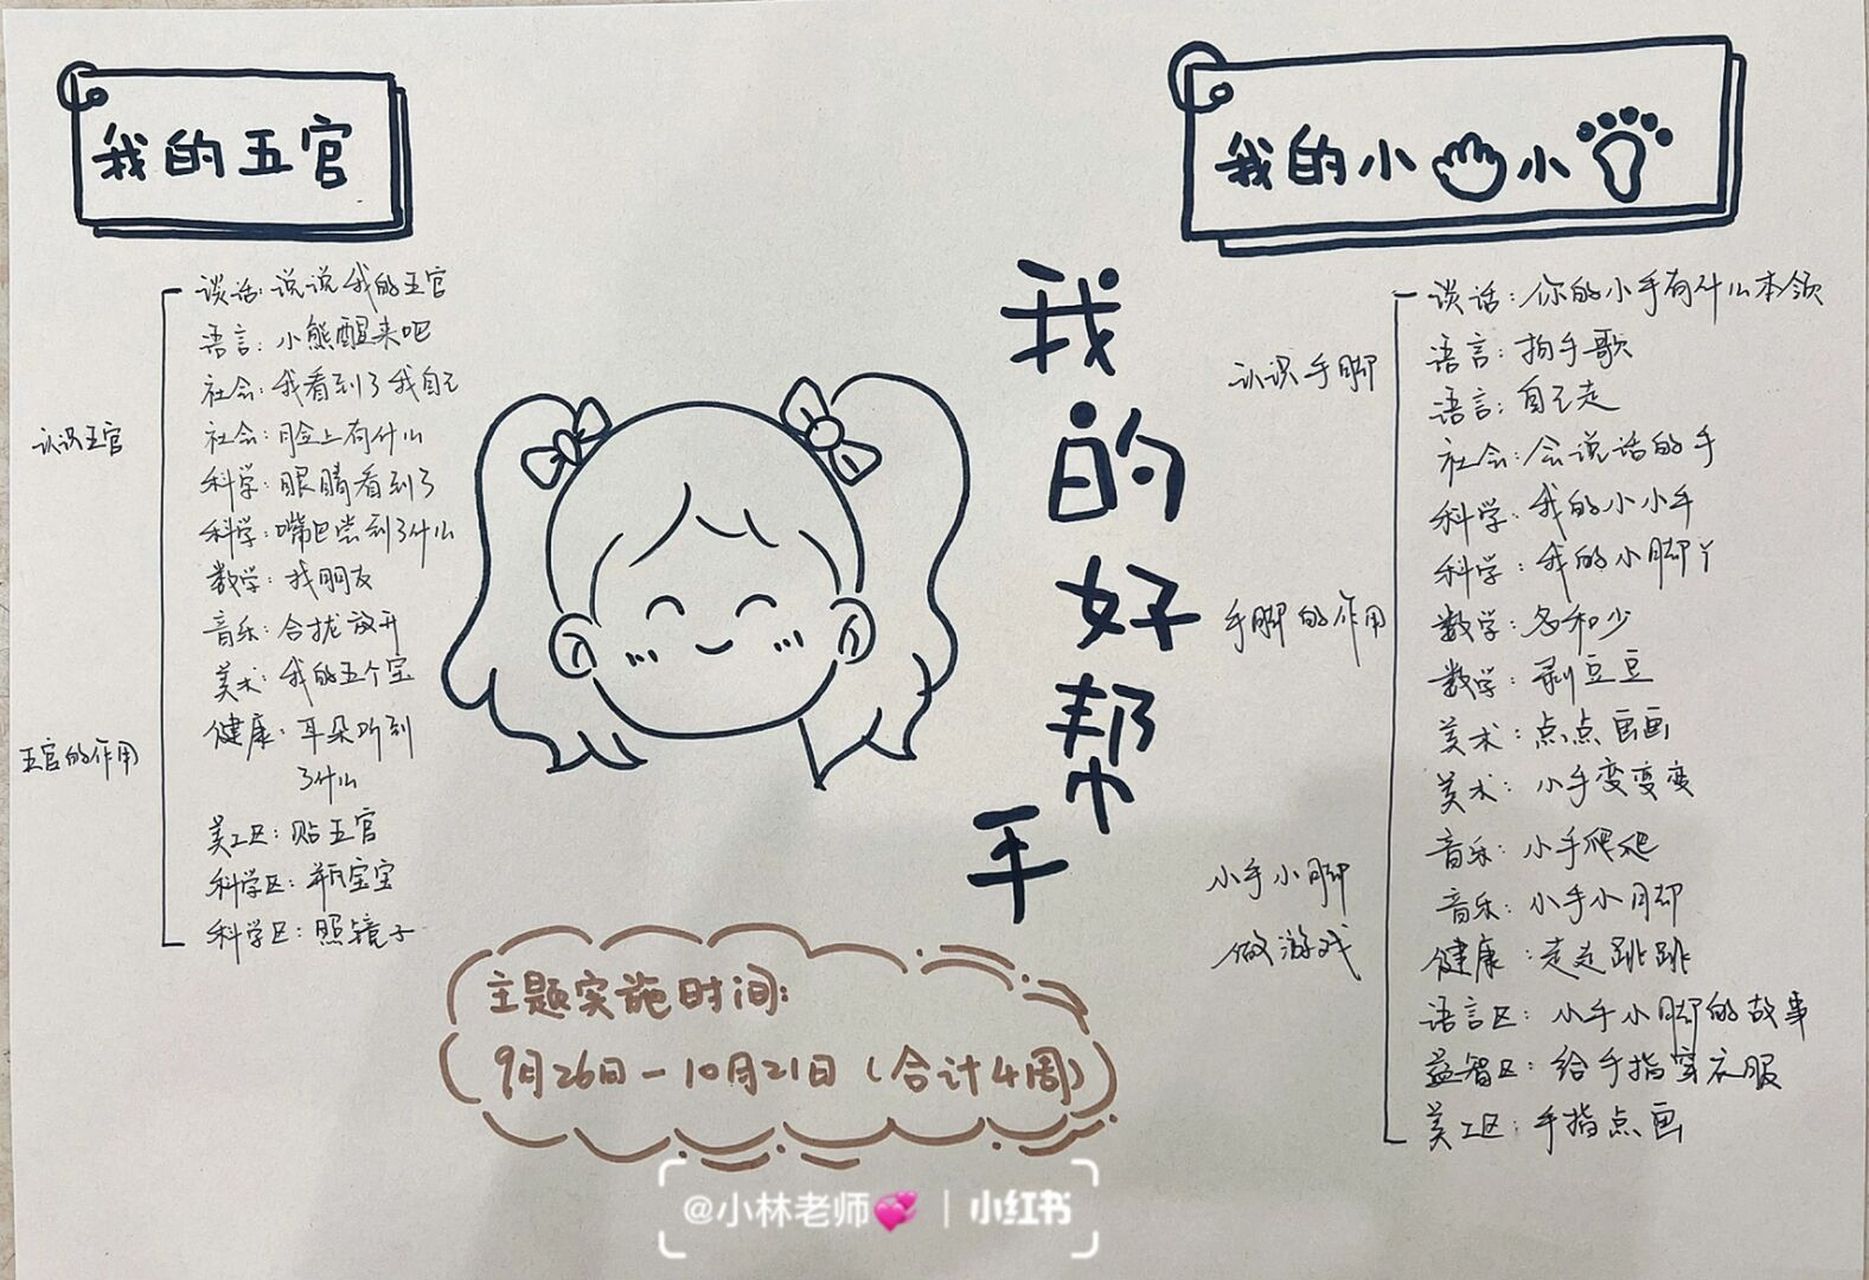 我的五官
谈话：说说我的五官
语言：小熊醒来吧
社会：我看到了我自己
社会：脸上有什么
科学：眼睛看到了
科学：嘴巴尝到了什么
数学：找朋友
音乐：合拢放开
美术：我的五个宝
健康：耳朵听到
了什么
美工区：贴五官
科学区：瓶宝宝
科学区：照镜子
认识五官
五官的作用
我的好帮手
主题实施时间：
9月26日—10月21日（合计4周）
我的小 小
认识手脚
手脚的作用
小手小脚
做游戏
谈话：你的小手有什么本领
语言：拍手歌
语言：自己走
社会：会说话的手
科学：我的小小手
科学：我的小脚丫
数学：多和少
数学：剥豆豆
美术：点点画画
美术：小手变变变
音乐：小手爬爬
音乐：小手小脚
健康：走走跳跳
语言区：小手小脚的故事
益智区：给手指穿衣服
美工区：手指点画
@小林老师💞｜小红书